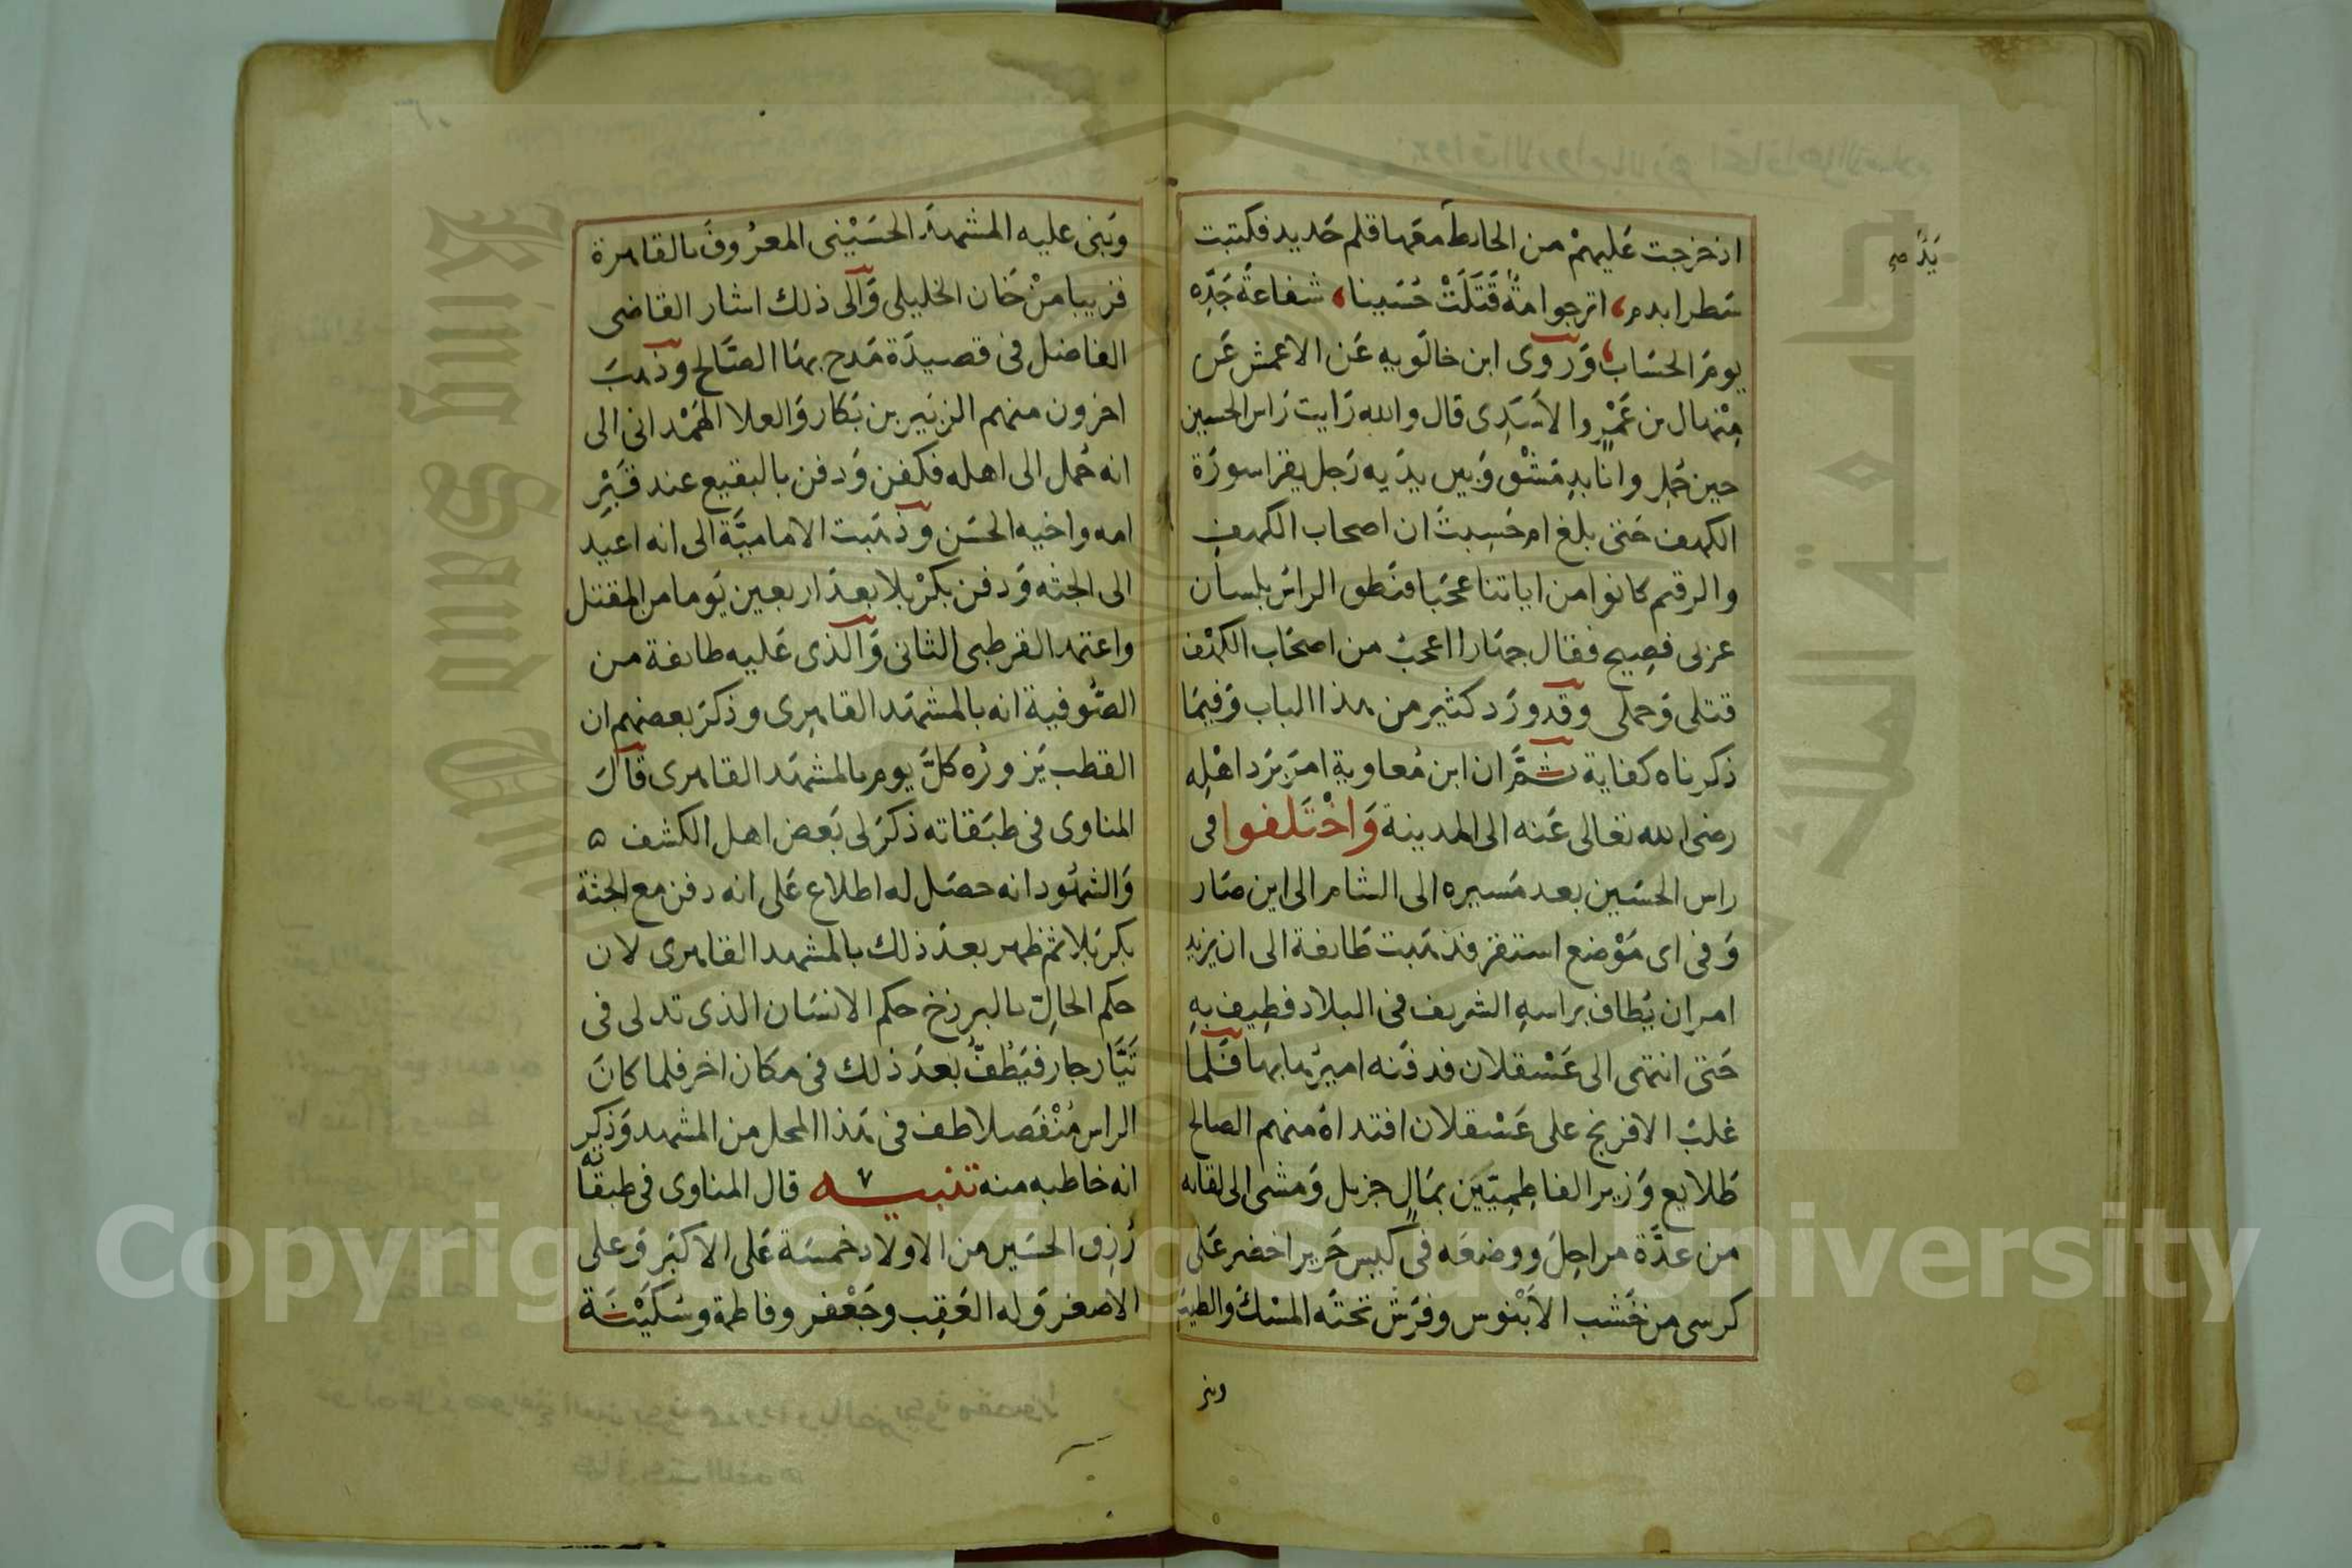 اذ خرجت عَليهمْ من الحايط معَها قلم حَديد فكتبت
سَطرا بدم، اترجوا امةٌ قَتَلَتْ حُسَينا، شفاعةُ جَدِّه
يومَ الحسَاب، وَرَوى ابن خالَويه عَن الاعمش عَن
مِنْهال بن عَمْرٍو الاسَدِى قال والله رَايت رَاس الحسين
حين حُمِلَ وانا بدِمَشْق وَبين يدَيه رَجل يقرا سورَة
الكهف حَتى بلغ ام حَسِبتَ ان اصحاب الكهفِ
والرقيم كانوا من اياتنا عجَبا فنَطق الراسُ بلسان
عربى فصِيح فقال جهَارا اعجبُ من اصحَاب الكهْف
قتلى وَحملى وقد ورَد كثير من هذا الباب وَفيمَا
ذكرناه كفاية ثمَّ ان ابن مُعاوية امَرَ بَرد اهْلِه
رضى الله تعَالى عَنه الى المدينة وَاخْتَلفوا فى
راس الحسَين بعد مَسيره الى الشام الى اين صَار
وَفى اى مَوْضع استقر فذهَبت طَايفة الى ان يزيد
امر ان يُطاف براسهِ الشريف فى البلاد فطِيف بهِ
حَتى انتهى الى عَسْقلان فدفَنه اميرُها بها فَلما
غلبَ الافرنج على عَسْقلان افتداهُ منهم الصالح
طَلايع وَزير الفاطِمِيّين بمَالٍ جزيل وَمَشى الى لقايه
من عدَّة مراحِلَ ووضعَه فى كيس حَرير اخضر عَلى
كرسى من خَشب الابَنْوس وفرَش تحتَه المسْكَ والطيبَ
وبنى
يَدَ صح
وَبَنى عليه المشهدَ الحسَيْنى المعرُوفَ بالقاهرة
قريبا منْ خَان الخليلى وَالى ذلك اشار القاضى
الفاضل فى قصيدَة مَدح بهَا الصَّالح وذهبَ
اخرون منهم الزبَير بن بَكار وَالعلا الهَمْدانى الى
انه حُمل الى اهله فكفن وَدفن بالبقيع عند قَبْرِ
امه واخيه الحسَن وذهَبت الاماميَّة الى انه اعيد
الى الجثه وَدفن بكرْبلا بعدَ اربعين يَوما من المقتل
واعتمد القرطبى الثانى وَالذى عَليه طايفة من
الصُّوفية انه بالمشهَد القاهِرى وذكرَ بعضهم ان
القطب يَزورُه كلَّ يوم بالمشهَد القاهرى قالَ
المناوى فى طبَقاته ذكرَ لى بَعض اهل الكشف ه
وَالشهُود انه حصَل له اطلاع عَلى انه دفن مع الجثة
بكربَلا ثم ظهر بعدَ ذلك بالمشهد القاهرى لان
حكم الحالّ بالبرزخ حكم الانسَان الذى تدلى فى
تَيَّار جار فيَطُفّ بَعدَ ذلك فى مكان اخر فلما كانَ
الراس مُنْفَصلا طف فى هَذا المحل من المشهد وَذكِر
انه خاطبه منه تنبيـــه قال المناوى فى طبقاته
رُزق الحسَين من الاولاد خمسَة عَلى الاكبَر وَعلى
الاصغر وَله العَقِب وجَعْفر وفاطمة وسُكَيْنَة